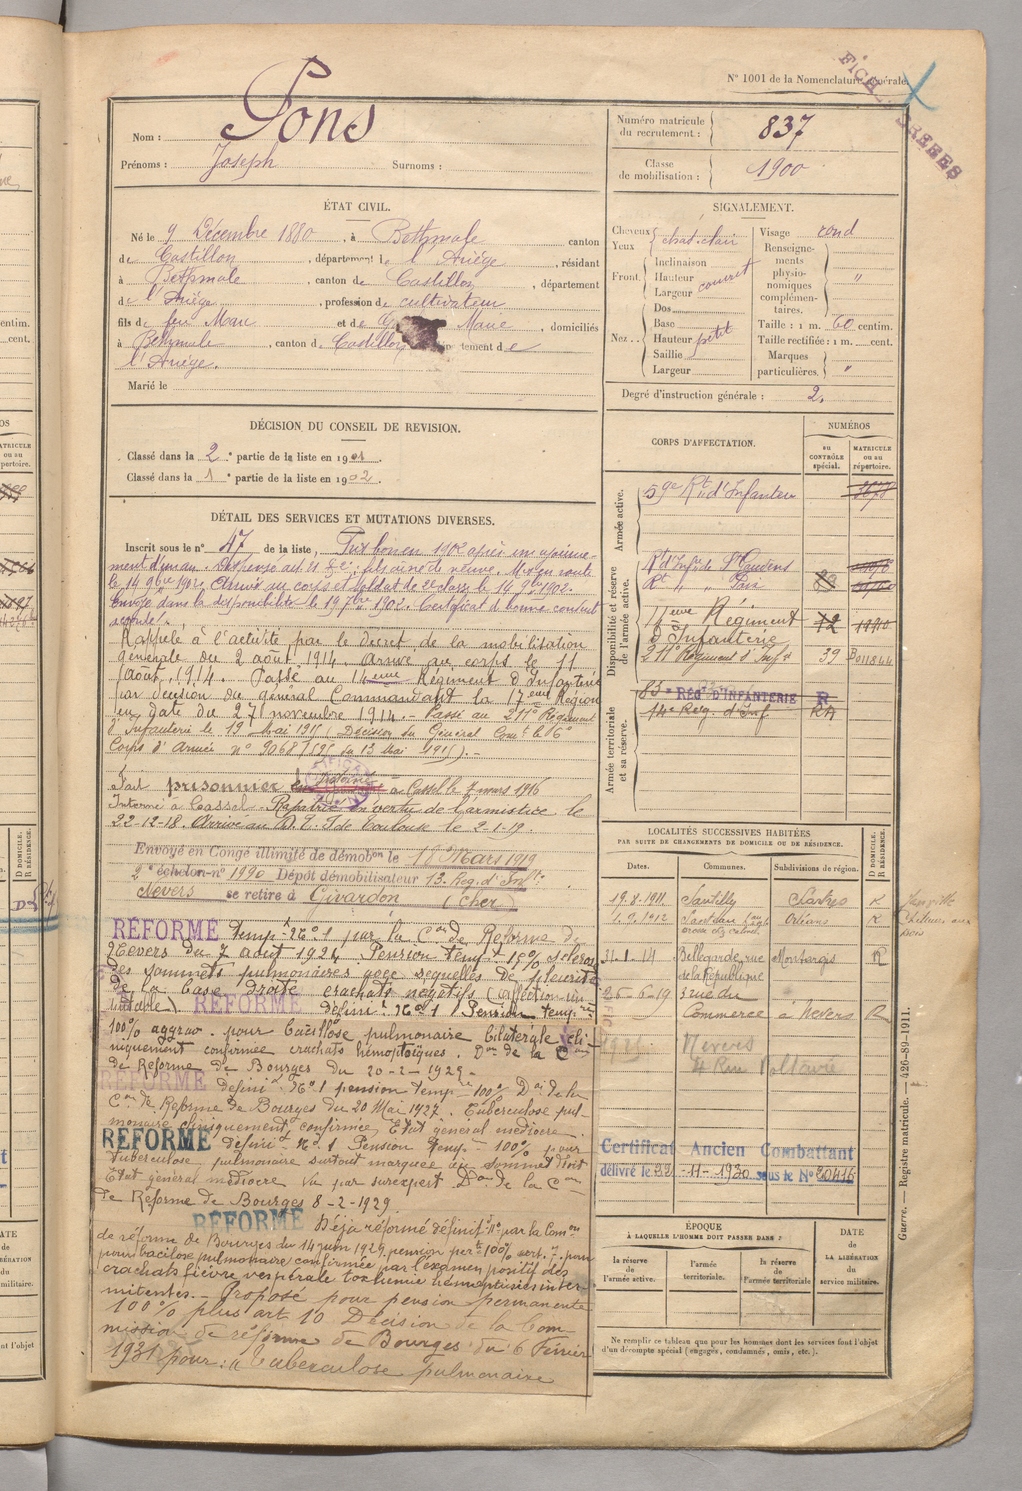 N° 1001 de la Nomenclature générale.
Nom : Pons
Prénoms : Joseph Surnoms :
Numéro matricule du recrutement : 837
Classe de mobilisation : 1900
ÉTAT CIVIL.
Né le 9 Décembre 1880, à Bethmale canton
de Castillon, département de l'Ariège, résidant
à Bethmale, canton de Castillon, département
de l'Ariège, profession de cultivateur
fils de feu Marc et de Marie, domiciliés
à Bethmale, canton de Castillon, département de
l'Ariège.
Marié le
SIGNALEMENT.
Cheveux
Yeux chat. clair
Front Inclinaison
Hauteur couvert
Largeur
Nez Dos
Base
Hauteur petit
Saillie
Largeur
Visage rond
Renseignements physionomiques complémentaires. "
Taille : 1 m. 60 centim.
Taille rectifiée : 1 m. cent.
Marques particulières. "
Degré d'instruction générale : 2.
DÉCISION DU CONSEIL DE REVISION.
Classé dans la 2e partie de la liste en 1901.
Classé dans la 1e partie de la liste en 1902.
DÉTAIL DES SERVICES ET MUTATIONS DIVERSES.
Inscrit sous le n° 47 de la liste, bon en 1902 après un ajourne-
ment d'un an. Dispensé art 21 : fils aîné de veuve. Mis en route
le 14 9bre 1902. Arrivé au corps et soldat de 2e classe le 14 9bre 1902.
Envoyé dans la disponibilité le 19 7bre 1902. Certificat de bonne conduite
accordé.
Rappelé à l'activité par le décret de la mobilisation
générale du 2 août 1914. Arrivé au corps le 11
Août 1914. Passé au 14eme Régiment d'Infanterie
par décision du général Commandant la 17eme Région
en date du 27 novembre 1914. - Passé au 211e Régiment
d'Infanterie le 19 Mai 1915 (Décision du Général Comt le 6e
Corps d'Armée n° 9068 du 13 Mai 1915). -
Fait prisonnier à Cassel le 7 mars 1916
Interné à Cassel - Rapatrié en vertu de l'armistice le
22-12-18. Arrivé au D.T. I de Toulouse le 2-1-19.
Envoyé en Congé illimité de démobon le 18 Mars 1919
2e échelon n° 1990 Dépôt démobilisateur 13. Reg. d'Infie
Nevers se retire à Givardon (Cher)
RÉFORMÉ Tempre N° 1 par la Con de Réforme de
Nevers du 7 août 1924. Pension tempre 15% sclérose
des sommets pulmonaires avec séquelles de pleurite
de la base droite crachats négatifs (affection im-
putable). RÉFORMÉ définif N° 1 Pension tempre
100% aggrav. pour bacillose pulmonaire bilatérale cli-
niquement confirmée crachats hémoptoïques. Don de la Con
de Réforme de Bourges du 20-2-1929 -
RÉFORMÉ définif N° 1 pension tempre 100% Don de la
Con de Réforme de Bourges du 20 Mai 1927. Tuberculose pul-
monaire cliniquement confirmée. Etat général médiocre.
RÉFORMÉ définif N° 1 Pension tempre - 100% pour
tuberculose pulmonaire surtout marquée au sommet droit
Etat général médiocre vu par surexpert. Don de la Con
de Réforme de Bourges 8-2-1929.
RÉFORMÉ Déjà réformé définitf n° 1 par la Comon
de réforme de Bourges du 14 juin 1929, pension perte 100% pour
bacillose pulmonaire confirmée par l'examen positif des
crachats fièvre vespérale toxhémie hémoptysies inter-
mittentes. - Proposé pour pension permanente
100% plus art. 10 Décision de la Com-
mission de réforme de Bourges du 6 Février
1931 pour : "Tuberculose pulmonaire
CORPS D'AFFECTATION.
NUMÉROS
au CONTRÔLE spécial.
MATRICULE ou au répertoire.
Armée active.
59e Rt d'Infanterie
Disponibilité et réserve de l'armée active.
Rt d'Infie de St Gaudens
Rt " " Foix
11eme Régiment 12
d'Infanterie
211e Régiment d'Infie 39 D011844
Armée territoriale et sa réserve.
83e RÉGt D'INFANTERIE R
14e Reg. d'Inf RA
LOCALITÉS SUCCESSIVES HABITÉES
PAR SUITE DE CHANGEMENTS DE DOMICILE OU DE RÉSIDENCE.
Dates. Communes. Subdivisions de région. D DOMICILE. R RÉSIDENCE.
19.8.1911 Santilly Chartres R
1.9.1912 Orléans R
31-1-14 Bellegarde, rue Montargis R
de la République
25-6-19 3 rue du
Commerce à Nevers R
Nevers
4 Rue Voltaire
Certificat Ancien Combattant
délivré le 22-11-1930 sous le N° 20416
ÉPOQUE
À LAQUELLE L'HOMME DOIT PASSER DANS :
la réserve de l'armée active.
l'armée territoriale.
la réserve de l'armée territoriale
DATE de LA LIBÉRATION du service militaire.
Ne remplir ce tableau que pour les hommes dont les services font l'objet
d'un décompte spécial (engagés, condamnés, omis, etc.).
Guerre. — Registre matricule. — 426-89-1911.